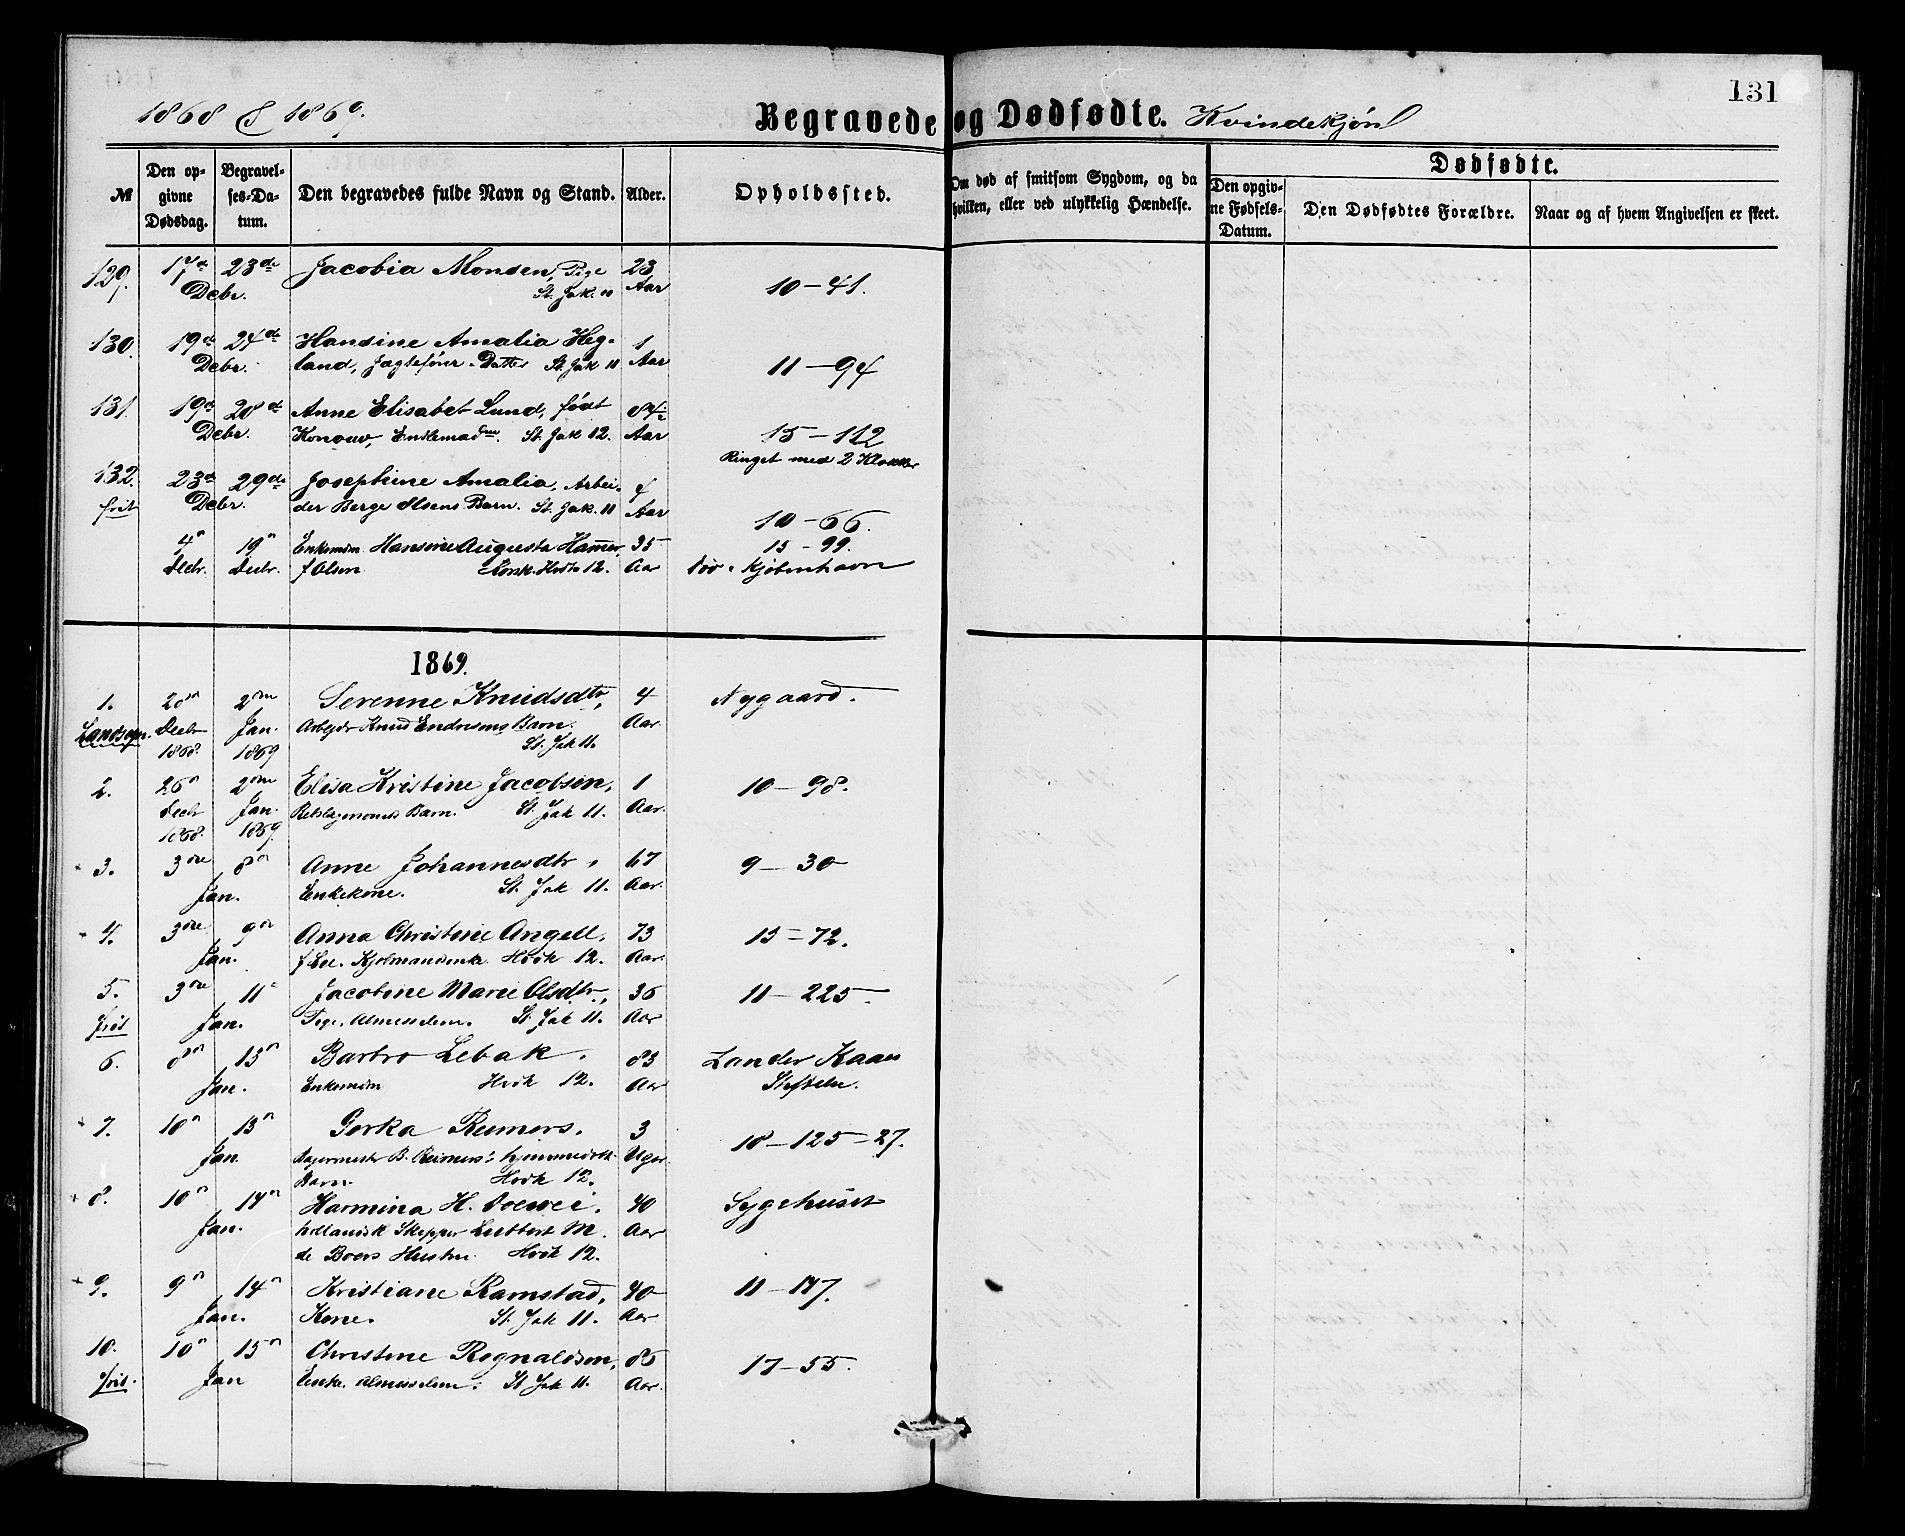 131
1868 & 1869.
Begravede og Dødfødte. Kvindekjøn
№
Den opgivne Dødsdag.
Begravelses-Datum.
Den begravedes fulde Navn og Stand.
Alder.
Opholdssted.
Om død af smitsom Sygdom, og da hvilken, eller ved ulykkelig Hændelse.
Dødfødte.
Den opgivne Fødsels-Datum.
Den Dødfødtes Forældre.
Naar og af hvem Angivelsen er skeet.
129. 17de 23de Jacobia Monsen, Pige 23
Debr. St. Jak. 11 Aar 10-41.
130. 19de 24de Hansine Amalia Heg- 1
Debr. land, Jagtefører Datter St. Jak 11 Aar 11-94
131. 19de 28de Anne Elisabet Lund, født 84½
Debr. Konouv, Enslemadm. St. Jak 12. Aar 15-112
Ringet med 2 Klokker
132. 23de 29de Josephine Amalia, Arbei-
frit Debr. der Berge Olsens Barn. St. Jak. 11 Aar 10-66.
4n 19n Hansine Augusta Hamer, 35 15-99.
Decbr. Decbr. f Olsen Korsk. Hvdk 12. Aar død i Kjøbenhavn
1869.
1. 20n 2den Serenne Knudsdtr, 4 Nygaard.
Landsogn. Decbr Jan. Arbejdr Knud Endresens Barn. Aar.
1868. 1869 St. Jak 11.
2. 26n 2den Elisa Kristine Jacobsen, 1 10-98.
Decbr Jan. Rebslagersvends Barn. St. Jak 11. Aar.
1868. 1869.
3. 3die 8n Anne Johannesdtr, 67 9-30
Jan. Enkekone. St. Jak 11. Aar.
4. 3die 9n Anna Christine Angell, 73 15-72.
Jan. Kjøbmandsenke. Hvdk 12. Aar.
5. 3die 11n Jacobine Marie Olsdtr, 36 11-225.
frit Jan. Pige, Almisselem. St. Jak 11. Aar
6. 8n 13n Barbro Lebak. 83 Zander Kaas
Jan. Enkemdm Hvdk 12. Aar Stiftelse.
7. 10n 13n Gerka Reimers. 3 18-125-27.
Jan. Bagermester B. Reimers' hjemmedøbt Uger.
Barn. Hvdk 12.
8. 10n 14n Harmina H. 40 Sygehuset
Jan. hollandsk Skipper Lubbert M. Aar
de Boers Hustru. Hvdk 12.
9. 9n 14n Kristiane Ramstad, 40 11-147.
Jan. Kone. St. Jak 11. Aar
10. 10n 15n Christine Rognaldsen, 86 17-55.
frit. Jan Enke. Almisselem. St Jak 11. Aar.